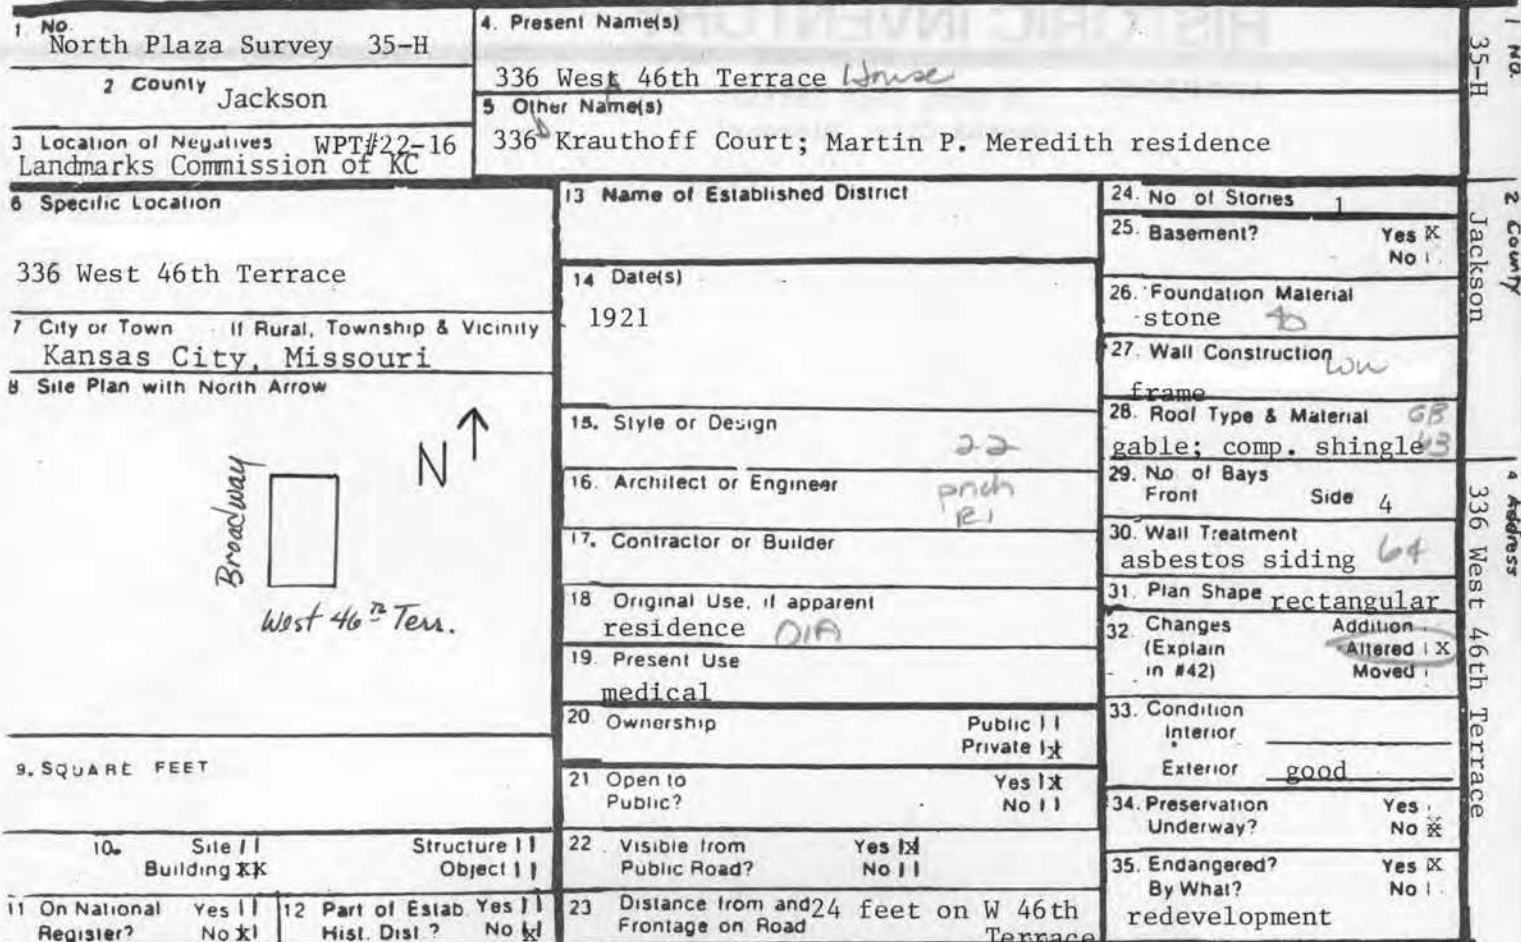 HISTORIC INVENTORY
1. No.
North Plaza Survey 35-H
2 County
Jackson
3 Location of Negatives WPT#22-16
Landmarks Commission of KC
4. Present Name(s)
336 West 46th Terrace House
5 Other Name(s)
336 Krauthoff Court; Martin P. Meredith residence
6 Specific Location
336 West 46th Terrace
7 City or Town If Rural, Township & Vicinity
Kansas City, Missouri
8 Site Plan with North Arrow
N
Broadway
West 46th Terr.
9. SQUARE FEET
10. Site Structure
Building XX Object
11 On National Register? Yes No X
12 Part of Estab. Hist. Dist.? Yes No X
13 Name of Established District
14 Date(s)
1921
15. Style or Design
22
16. Architect or Engineer
17. Contractor or Builder
18 Original Use, if apparent
residence 01A
19. Present Use
medical
20 Ownership Public
Private X
21 Open to Public? Yes X
No
22. Visible from Public Road? Yes X
No
23 Distance from and Frontage on Road 24 feet on W 46th Terrace
24. No of Stories 1
25. Basement? Yes X
No
26. Foundation Material
stone 40
27. Wall Construction
frame
28. Roof Type & Material GB
gable; comp. shingle 63
29. No. of Bays
Front Side 4
30. Wall Treatment
asbestos siding 64
31. Plan Shape rectangular
32. Changes (Explain in #42) Addition
Altered X
Moved
33. Condition
Interior
Exterior good
34. Preservation Underway? Yes
No X
35. Endangered? Yes X
By What? No
redevelopment
1 No.
35-H
2 County
Jackson
4 Address
336 West 46th Terrace